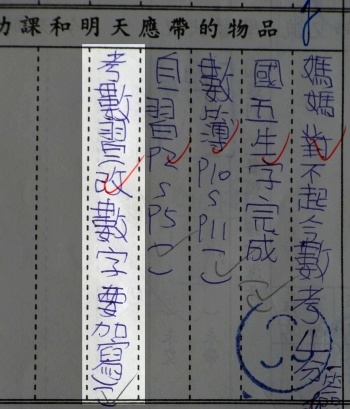 功課和明天應帶的物品
媽媽對不起今數考4分
國五生字完成( )
數簿P10~P11( )
自習P2~P5( )
考數習改數字要加寫( )